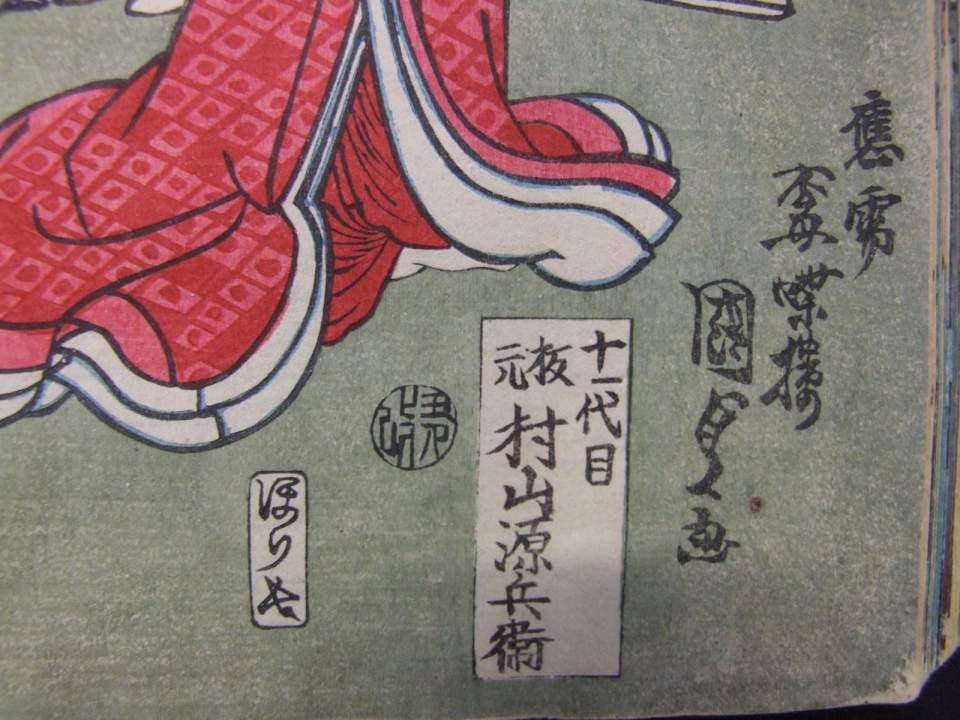 應需
梅蝶樓
國貞画
十一代目
板元 村山源兵衛
ほり長